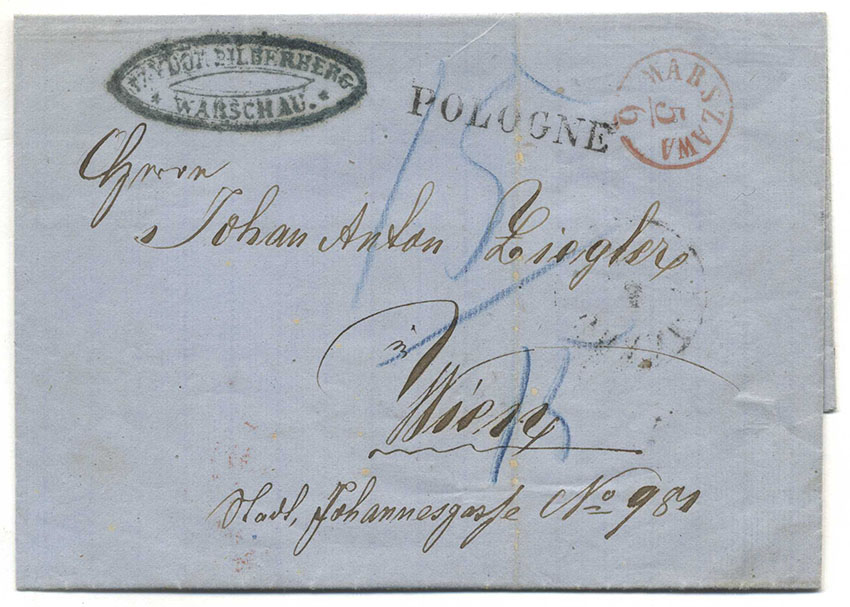 SILBERBERG
* WARSCHAU. *
POLOGNE
WARSZAWA
5/6
15
Herrn
Johan Anton Ziegler
in
Wien
Stadt, Johannesgasse No 981